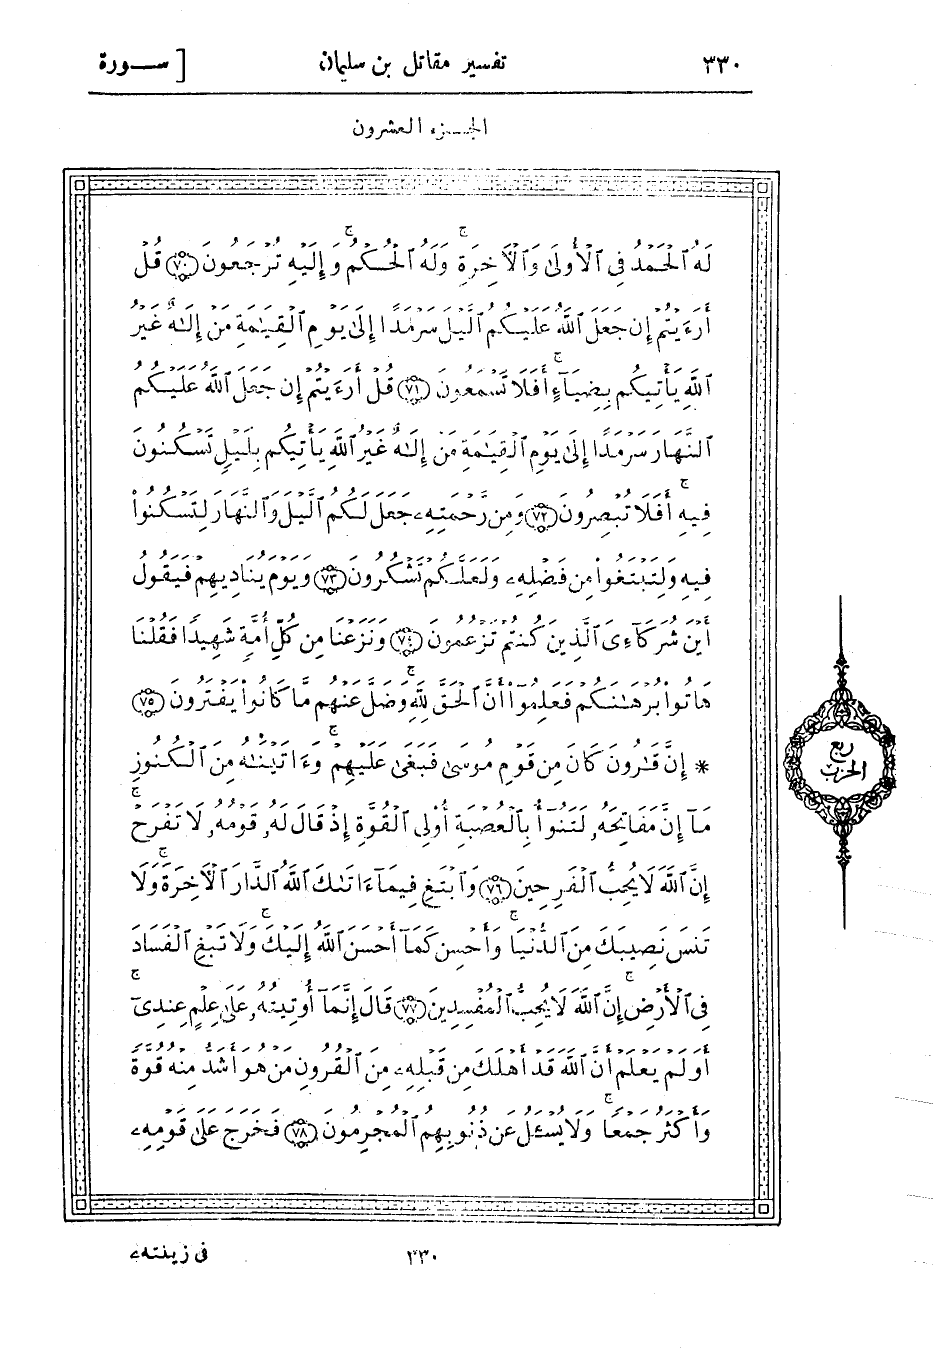 ٣٣٠ تفسير مقاتل بن سليمان [ ســـورة
الجـزء العشرون
لَهُ ٱلْحَمْدُ فِى ٱلْأُولَىٰ وَٱلْأَخِرَةِ ۖ وَلَهُ ٱلْحُكْمُ وَإِلَيْهِ تُرْجَعُونَ ﴿٧٠﴾ قُلْ
أَرَءَيْتُمْ إِن جَعَلَ ٱللَّهُ عَلَيْكُمُ ٱلَّيْلَ سَرْمَدًا إِلَىٰ يَوْمِ ٱلْقِيَٰمَةِ مَنْ إِلَٰهٌ غَيْرُ
ٱللَّهِ يَأْتِيكُم بِضِيَآءٍ ۚ أَفَلَا تَسْمَعُونَ ﴿٧١﴾ قُلْ أَرَءَيْتُمْ إِن جَعَلَ ٱللَّهُ عَلَيْكُمُ
ٱلنَّهَارَ سَرْمَدًا إِلَىٰ يَوْمِ ٱلْقِيَٰمَةِ مَنْ إِلَٰهٌ غَيْرُ ٱللَّهِ يَأْتِيكُم بِلَيْلٍ تَسْكُنُونَ
فِيهِ ۚ أَفَلَا تُبْصِرُونَ ﴿٧٢﴾ وَمِن رَّحْمَتِهِۦ جَعَلَ لَكُمُ ٱلَّيْلَ وَٱلنَّهَارَ لِتَسْكُنُوا۟
فِيهِ وَلِتَبْتَغُوا۟ مِن فَضْلِهِۦ وَلَعَلَّكُمْ تَشْكُرُونَ ﴿٧٣﴾ وَيَوْمَ يُنَادِيهِمْ فَيَقُولُ
أَيْنَ شُرَكَآءِىَ ٱلَّذِينَ كُنتُمْ تَزْعُمُونَ ﴿٧٤﴾ وَنَزَعْنَا مِن كُلِّ أُمَّةٍ شَهِيدًا فَقُلْنَا
هَاتُوا۟ بُرْهَٰنَكُمْ فَعَلِمُوٓا۟ أَنَّ ٱلْحَقَّ لِلَّهِ وَضَلَّ عَنْهُم مَّا كَانُوا۟ يَفْتَرُونَ ﴿٧٥﴾
* إِنَّ قَٰرُونَ كَانَ مِن قَوْمِ مُوسَىٰ فَبَغَىٰ عَلَيْهِمْ ۖ وَءَاتَيْنَٰهُ مِنَ ٱلْكُنُوزِ
مَآ إِنَّ مَفَاتِحَهُۥ لَتَنُوٓأُ بِٱلْعُصْبَةِ أُو۟لِى ٱلْقُوَّةِ إِذْ قَالَ لَهُۥ قَوْمُهُۥ لَا تَفْرَحْ ۖ
إِنَّ ٱللَّهَ لَا يُحِبُّ ٱلْفَرِحِينَ ﴿٧٦﴾ وَٱبْتَغِ فِيمَآ ءَاتَىٰكَ ٱللَّهُ ٱلدَّارَ ٱلْأَخِرَةَ ۖ وَلَا
تَنسَ نَصِيبَكَ مِنَ ٱلدُّنْيَا ۖ وَأَحْسِن كَمَآ أَحْسَنَ ٱللَّهُ إِلَيْكَ ۖ وَلَا تَبْغِ ٱلْفَسَادَ
فِى ٱلْأَرْضِ ۖ إِنَّ ٱللَّهَ لَا يُحِبُّ ٱلْمُفْسِدِينَ ﴿٧٧﴾ قَالَ إِنَّمَآ أُوتِيتُهُۥ عَلَىٰ عِلْمٍ عِندِىٓ ۚ
أَوَلَمْ يَعْلَمْ أَنَّ ٱللَّهَ قَدْ أَهْلَكَ مِن قَبْلِهِۦ مِنَ ٱلْقُرُونِ مَنْ هُوَ أَشَدُّ مِنْهُ قُوَّةً
وَأَكْثَرُ جَمْعًا ۚ وَلَا يُسْـَٔلُ عَن ذُنُوبِهِمُ ٱلْمُجْرِمُونَ ﴿٧٨﴾ فَخَرَجَ عَلَىٰ قَوْمِهِۦ
ربع
الحزب
٣٣٠ فى زينتهۦ